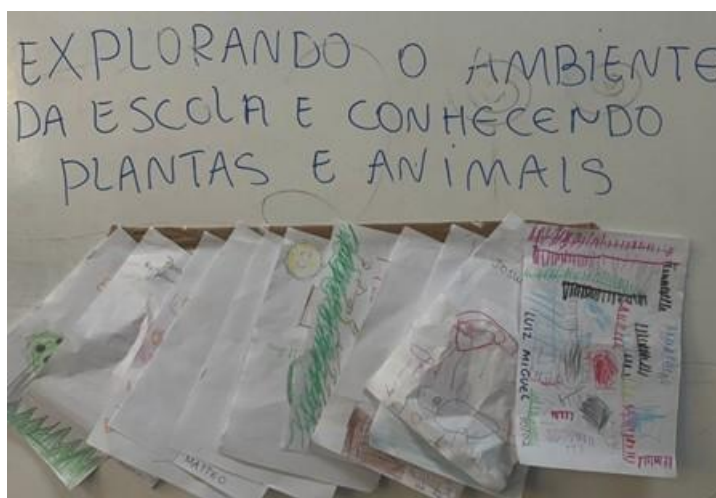 EXPLORANDO O AMBIENTE
DA ESCOLA E CONHECENDO
PLANTAS E ANIMAIS
MATTEO
LUIZ MIGUEL